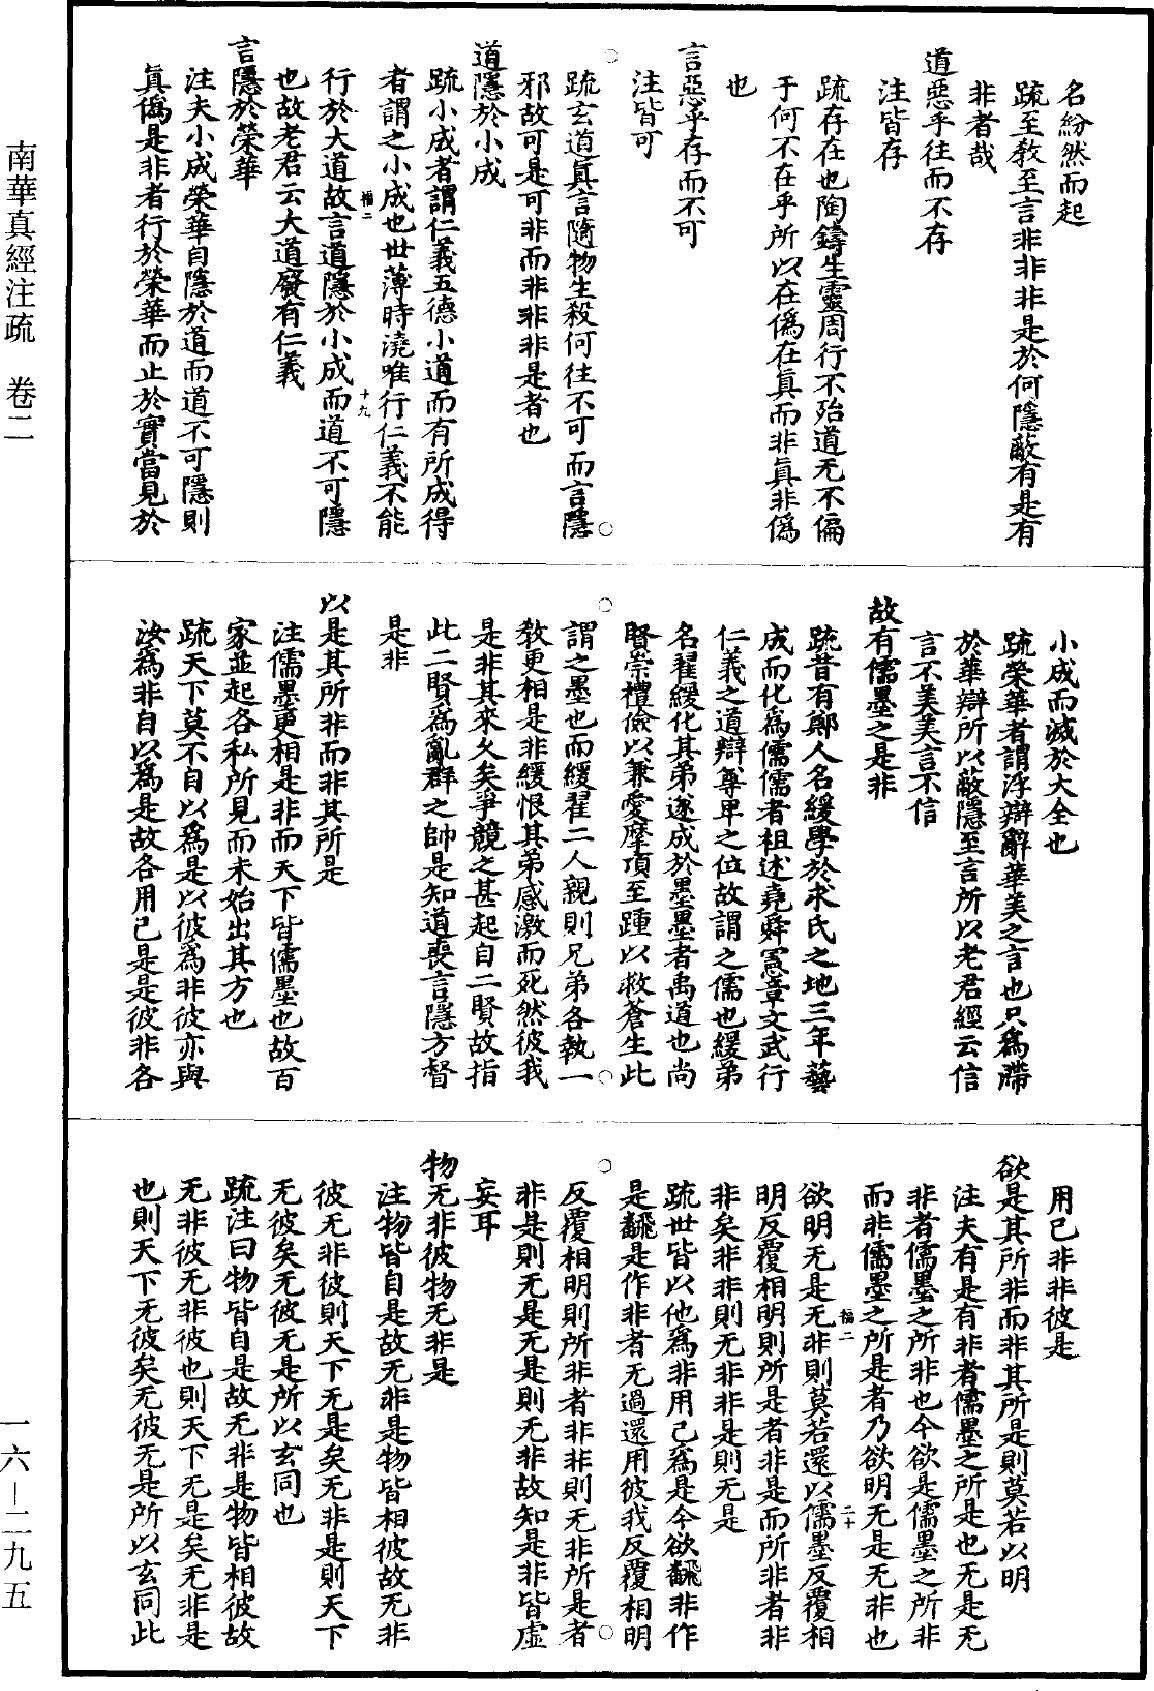 名紛然而起
疏至教至言非非非是於何隱蔽有是有
非者哉
道惡乎往而不存
注皆存
疏存在也陶鑄生靈周行不殆道无不徧
于何不在乎所以在僞在眞而非眞非僞
也
言惡乎存而不可
注皆可
疏玄道眞言隨物生殺何往不可而言隱
邪故可是可非而非非非是者也
道隱於小成
疏小成者謂仁義五德小道而有所成得
者謂之小成也世薄時澆唯行仁義不能
行於大道故言道隱於小成而道不可隱
福二
十九
也故老君云大道廢有仁義
言隱於榮華
注夫小成榮華自隱於道而道不可隱則
眞僞是非者行於榮華而止於實當見於
小成而滅於大全也
疏榮華者謂浮辯辭華美之言也只爲滯
於華辯所以蔽隱至言所以老君經云信
言不美美言不信
故有儒墨之是非
疏昔有鄭人名緩學於求氏之地三年藝
成而化爲儒儒者祖述堯舜憲章文武行
仁義之道辯尊卑之位故謂之儒也緩弟
名翟緩化其弟遂成於墨墨者禹道也尚
賢崇禮儉以兼愛摩頂至踵以救蒼生此
謂之墨也而緩翟二人親則兄弟各執一
教更相是非緩恨其弟感激而死然彼我
是非其來久矣爭競之甚起自二賢故指
此二賢爲亂群之帥是知道喪言隱方督
是非
以是其所非而非其所是
注儒墨更相是非而天下皆儒墨也故百
家並起各私所見而未始出其方也
疏天下莫不自以爲是以彼爲非彼亦與
汝爲非自以爲是故各用己是是彼非各
用己非非彼是
欲是其所非而非其所是則莫若以明
注夫有是有非者儒墨之所是也无是无
非者儒墨之所非也今欲是儒墨之所非
而非儒墨之所是者乃欲明无是无非也
福二
二十
欲明无是无非則莫若還以儒墨反覆相
明反覆相明則所是者非是而所非者非
非矣非非則无非非是則无是
疏世皆以他爲非用己爲是今欲飜非作
是飜是作非者无過還用彼我反覆相明
反覆相明則所非者非非則无非所是者
非是則无是无是則无非故知是非皆虛
妄耳
物无非彼物无非是
注物皆自是故无非是物皆相彼故无非
彼无非彼則天下无是矣无非是則天下
无彼矣无彼无是所以玄同也
疏注曰物皆自是故无非是物皆相彼故
无非彼无非彼也則天下无是矣无非是
也則天下无彼矣无彼无是所以玄同此
南華真經注疏　卷二
一六－二九五